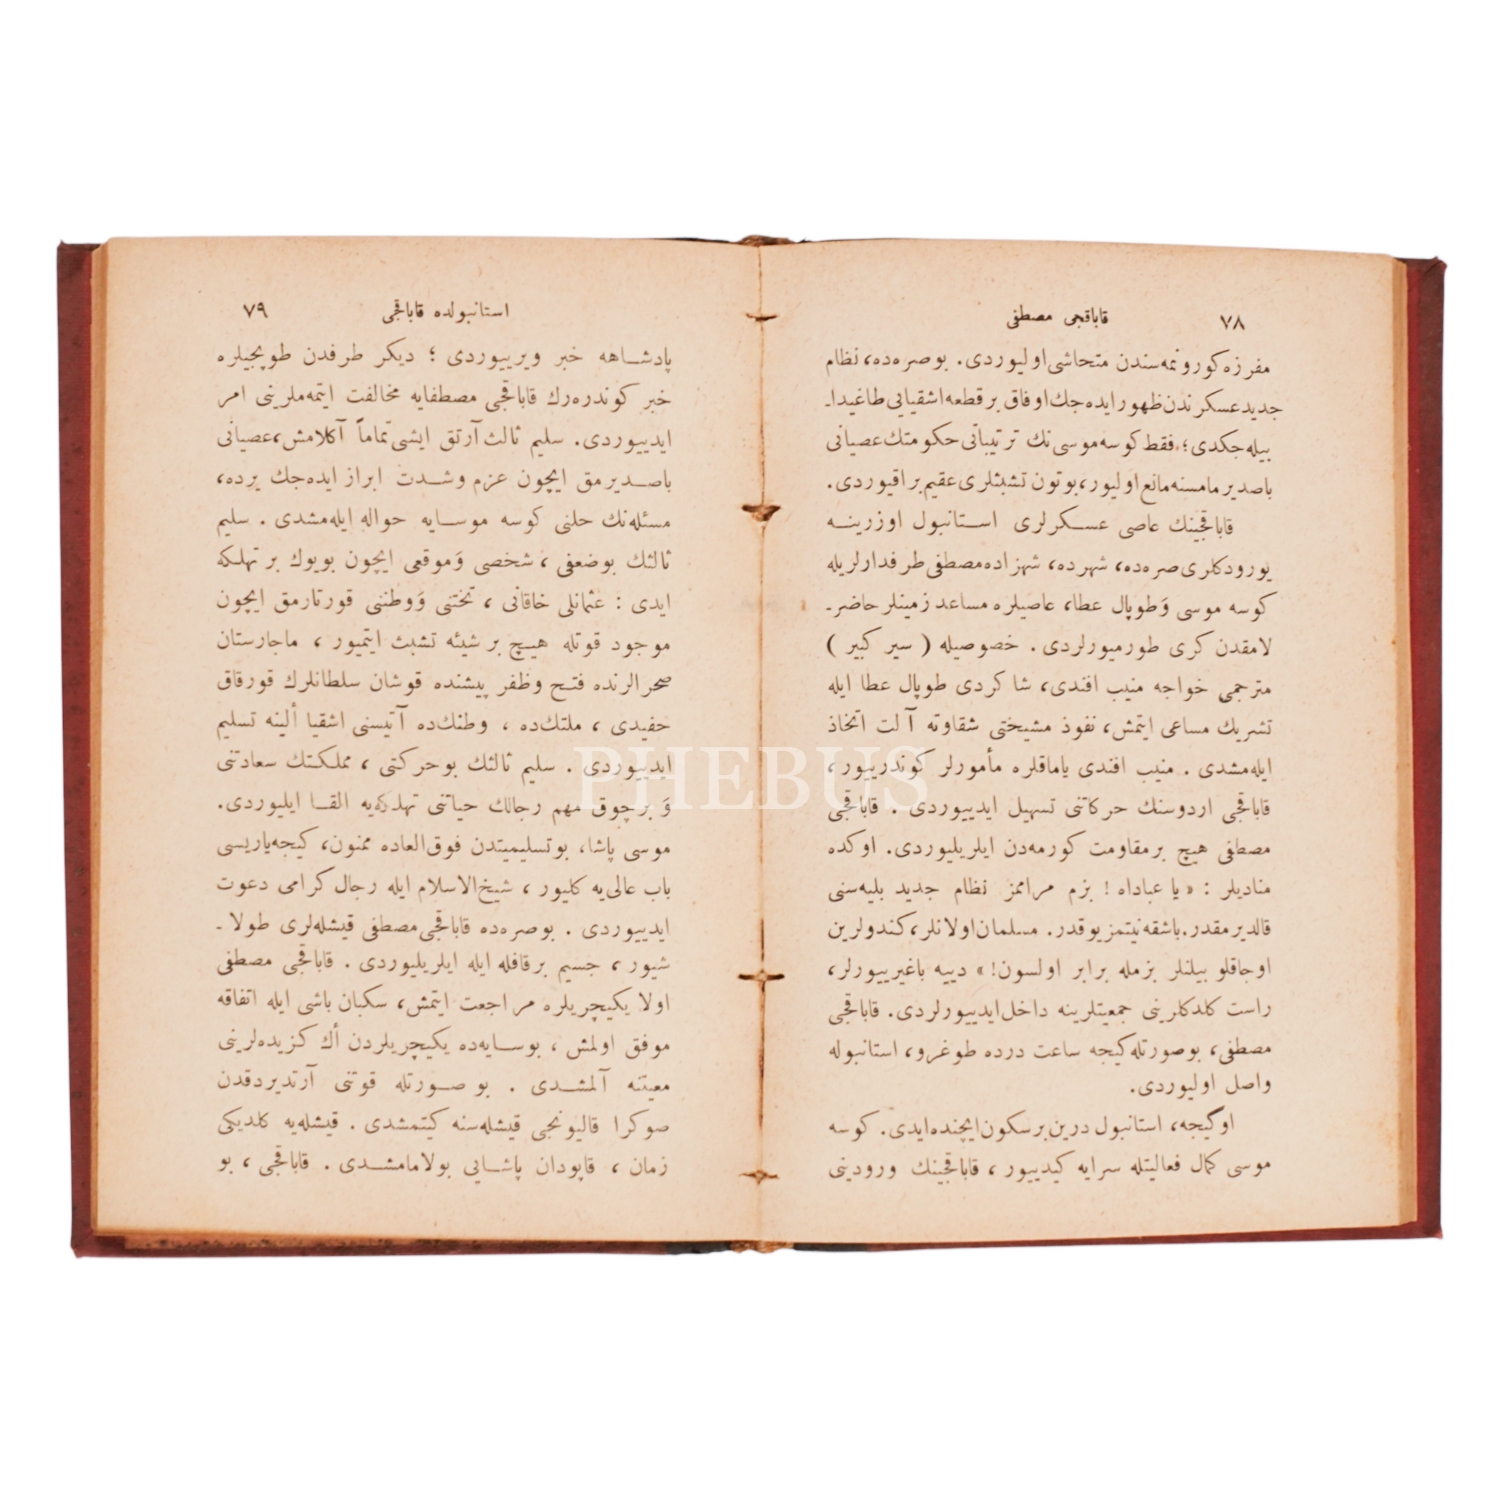 ٧٨
قاباقجی مصطفی
مفرزه كورونمه‌سندن متحاشی اولیوردی. بوصره‌ده، نظام
جدید عسكرندن ظهور ایده‌جك اوفاق بر قطعه اشقیایی طاغیدا-
بیله‌جكدی؛ فقط كوسه موسی نك ترتیباتی حكومتك عصیانی
باصدیرمامسنه مانع اولیور، بوتون تشبثلری عقیم براقیوردی.
قاباقجینك عاصی عسكرلری استانبول اوزرینه
یورودكلری صره‌ده، شهرده، شهزاده مصطفی طرفدارلریله
كوسه موسی وَطوپال عطا، عاصیلره مساعد زمینلر حاضر-
لامقدن كری طورمیورلردی. خصوصیله ( سیر كبیر )
مترجمی خواجه منیب افندی، شا كردی طوپال عطا ایله
تشریك مساعی ایتمش، نفوذ مشیختی شقاوته آلت اتخاذ
ایله‌مشدی. منیب افندی یاماقلره مأمورلر كوندرییور،
قاباقجی اردوسنك حركاتنی تسهیل ایدییوردی. قاباقجی
مصطفی هیچ بر مقاومت كورمه‌دن ایلریلیوردی. اوكده
منادیلر : « یا عباداه ! بزم مراممز نظام جدید بلیه‌سنی
قالدیرمقدر. باشقه نیتمز یوقدر. مسلمان اولانلر، كندولرین
اوجاقلو بیلنلر بزمله برابر اولسون! » دییه باغیرییورلر،
راست كلدكلرینی جمعیتلرینه داخل ایدییورلردی. قاباقجی
مصطفی، بوصورتله كیجه ساعت درده طوغرو، استانبوله
واصل اولیوردی.
اوكیجه، استانبول درین بر سكون ایچنده ایدی. كوسه
موسی كمال فعالیتله سرایه كیدییور، قاباقجینك ورودینی
استانبولده قاباقجی
٧٩
پادشاهه خبر ویرییوردی ؛ دیكر طرفدن طوپجیلره
خبر كوندره‌رك قاباقجی مصطفایه مخالفت ایتمه‌ملرینی امر
ایدییوردی. سلیم ثالث آرتق ایشی تماماً آكلامش، عصیانی
باصدیرمق ایچون عزم وشدت ابراز ایده‌جك یرده،
مسئله‌نك حلنی كوسه موسایه حواله ایله‌مشدی. سلیم
ثالثك بوضعفی، شخصی وَموقعی ایچون بویوك بر تهلكه
ایدی : عثمانلی خاقانی، تختنی وَوطننی قورتارمق ایچون
موجود قوتله هیچ بر شیئه تشبث ایتمیور، ماجارستان
صحرالرنده فتح وظفر پیشنده قوشان سلطانلرك قورقاق
حفیدی، ملتك‌ده، وطنك‌ده آتیسنی اشقیا ألینه تسلیم
ایدییوردی. سلیم ثالثك بوحركتی، مملكتك سعادتنی
وَ برچوق مهم رجالك حیاتنی تهلكه‌یه القا ایلیوردی.
موسی پاشا، بوتسلیمیتدن فوق‌العاده ممنون، كیجه‌یاریسی
باب عالی‌یه كلیور، شیخ‌الاسلام ایله رجال كرامی دعوت
ایدییوردی. بوصره‌ده قاباقجی مصطفی قیشله‌لری طولا-
شیور، جسیم بر قافله ایله ایلریلیوردی. قاباقجی مصطفی
اولا یكیچریلره مراجعت ایتمش، سكبان باشی ایله اتفاقه
موفق اولمش، بوسایه‌ده یكیچریلردن أك كزیده‌لرینی
معیتنه آلمشدی. بو صورتله قوتنی آرتدیردقدن
صوكرا قالیونجی قیشله‌سنه كیتمشدی. قیشله‌یه كلدیكی
زمان، قاپودان پاشایی بولامامشدی. قاباقجی، بو
PHEBUS